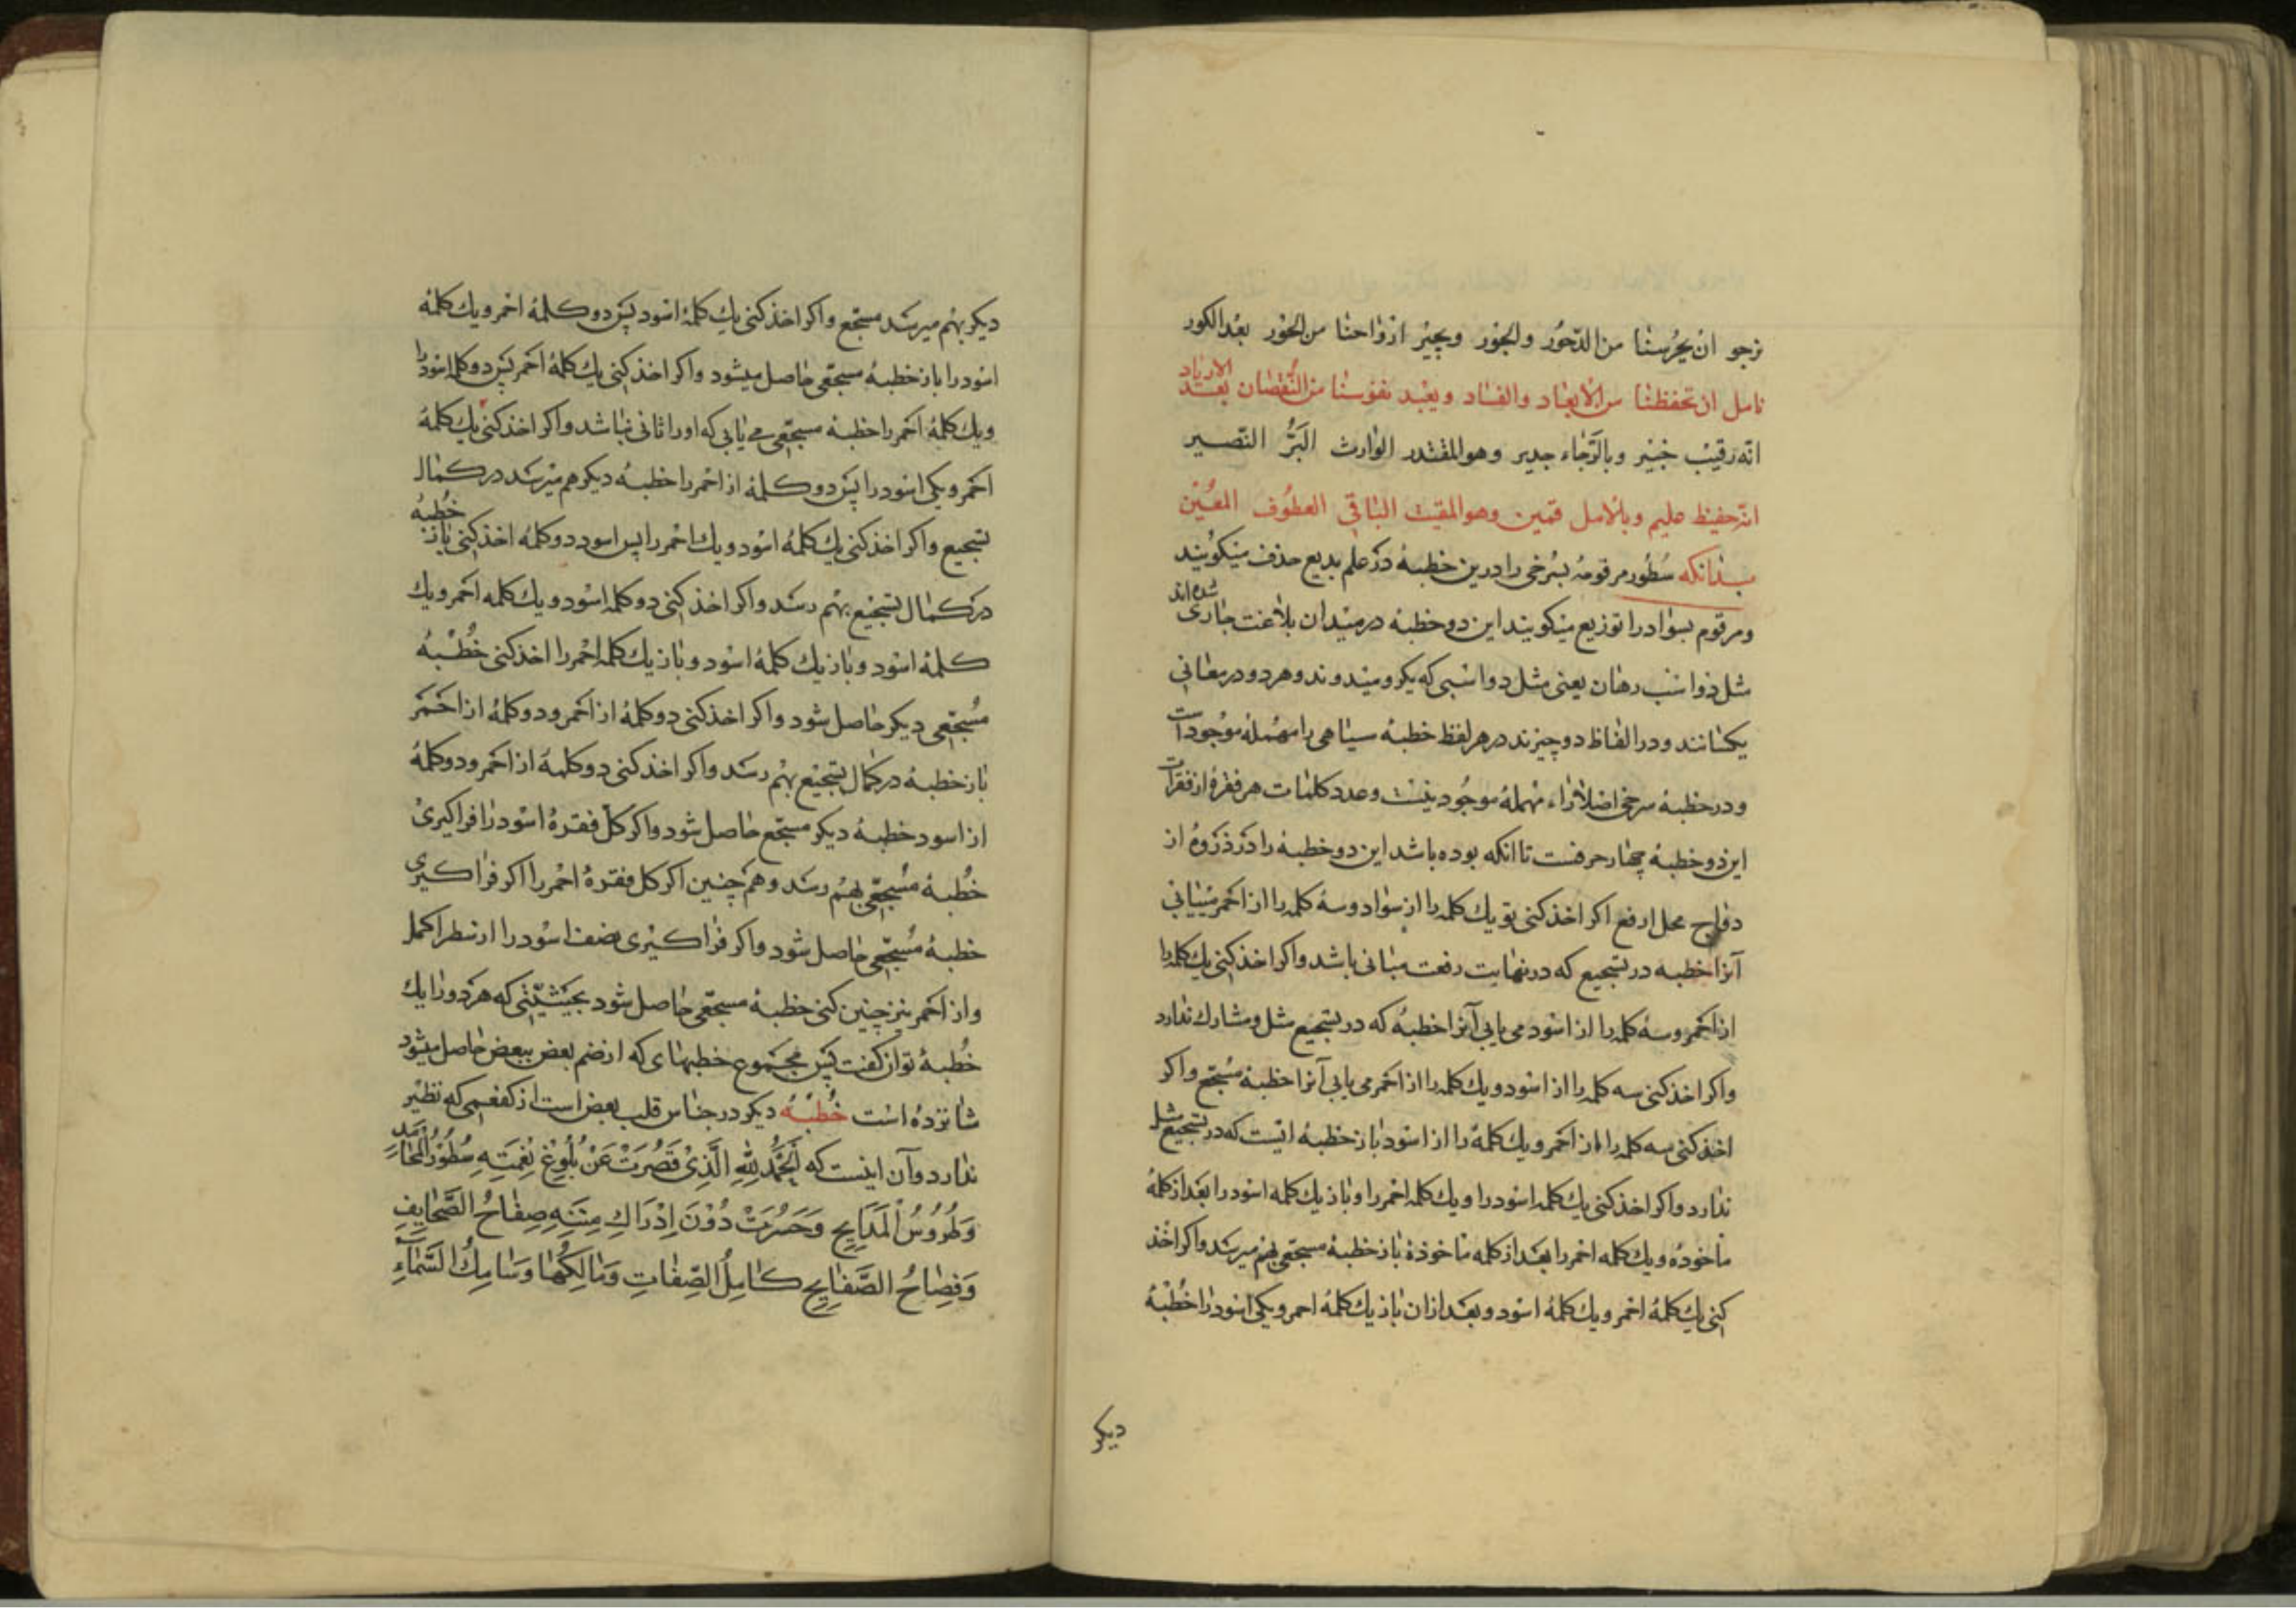 نرجو ان يحرسنا من الدحور والجور ويجير ارواحنا من الحور بعد الكور
نامل ان تحفظنا من الابعاد والفساد ويعيد نفوسنا من النقصان بعد الازدياد
انه رقيب خبير وبالرجاء جدير وهو المقتدر الوارث البر النصير
انه حفيظ عليم وبالامل قمين وهو المقيت الباقى العطوف المعين
بدانكه سطور مرقومه بسرخى را درين خطبهٔ در علم بديع حذف ميكويند
ومرقوم بسواد را توزيع ميكويند اين دو خطبهٔ در ميدان بلاغت جارى شده اند
مثل دو اسب رهان يعنى مثل دو اسبى كه بكرو ميدوند وهر دو در معانى
يكسانند ودر الفاظ دو چيزند در هر لفظ خطبهٔ سياهى راء مهمله موجود است
ودر خطبهٔ سرخى اصلا راء مهمله موجود نيست وعدد كلمات هر فقرهٔ از فقرات
اين دو خطبهٔ چهار حرفست تا انكه بوده باشد اين دو خطبهٔ را در ذروهٔ از
رواج محل ارفع اكر اخذ كنى تو يك كلمه را از سواد وسهٔ كلمه را از احمر ميابى
آنرا خطبه در تسجيع كه در نهايت رفعت مبانى باشد واكر اخذ كنى يك كلمه را
از احمر وسهٔ كلمه را از اسود مى يابى آنرا خطبهٔ كه در تسجيع مثل ومشارك ندارد
واكر اخذ كنى سه كلمه را از اسود ويك كلمه را از احمر مى يابى آنرا خطبهٔ مسجع واكر
اخذ كنى سه كلمه را از احمر ويك كلمهٔ را از اسود باز خطبهٔ ايست كه در تسجيع مثل
ندارد واكر اخذ كنى يك كلمه اسود را ويك كلمه احمر را وباز يك كلمه اسود را بعد از كلمهٔ
ماخوذه ويك كلمه احمر را بعد از كلمه ماخوذهٔ باز خطبهٔ مسجعى بهم ميرسد واكر اخذ
كنى يك كلمهٔ احمر ويك كلمهٔ اسود وبعد ازان باز يك كلمهٔ احمر ويكى اسود را خطبهٔ
ديكر
ديكر بهم ميرسد مسجع واكر اخذ كنى يك كلمهٔ اسود پس دو كلمهٔ احمر ويك كلمهٔ
اسود را باز خطبهٔ مسجعى حاصل ميشود واكر اخذ كنى يك كلمهٔ احمر پس دو كلمه اسود را
ويك كلمهٔ احمر را خطبهٔ مسجعى مى يابى كه اورا ثانى نباشد واكر اخذ كنى يك كلمهٔ
احمر ويكى اسود را پس دو كلمهٔ از احمر را خطبهٔ ديكر هم ميرسد در كمال
تسجيع واكر اخذ كنى يك كلمهٔ اسود ويك احمر را پس اسود دو كلمهٔ اخذ كنى باز خطبهٔ
در كمال تسجيع بهم رسد واكر اخذ كنى دو كلمه اسود ويك كلمه احمر ويك
كلمهٔ اسود وباز يك كلمهٔ اسود وباز يك كلمه احمر را اخذ كنى خطبهٔ
مسجعى ديكر حاصل شود واكر اخذ كنى دو كلمهٔ از احمر ودو كلمهٔ از احمر
باز خطبهٔ در كمال تسجيع بهم رسد واكر اخذ كنى دو كلمهٔ از احمر ودو كلمهٔ
از اسود خطبهٔ ديكر مسجع حاصل شود واكر كل فقرهٔ اسود را فرا كيرى
خطبهٔ مسجعى بهم رسد وهم چنين اكر كل فقرهٔ احمر را اكر فرا كيرى
خطبهٔ مسجعى حاصل شود واكر فرا كيرى نصف اسود را از سطر اكمل
واز احمر نيز چنين كنى خطبهٔ مسجعى حاصل شود بحيثيتى كه هر دو را يك
خطبهٔ توان كفت پس مجموع خطبهاى كه از ضم بعض ببعض حاصل ميشود
شانزده است خطبهٔ ديكر در جناس قلب بعض است از كفعمى كه نظير
ندارد وآن اينست كه اَلحَمدُ لِلّهِ الَّذِى قَصُرَت عَن بُلُوغِ نِعمَتِهِ سُطُورُ المَحَامِدِ
وَطُرُوسُ المَدَايِحِ وَحَسُرَت دُونَ اِدرَاكِ مِنَنِهِ صِفَاحُ الصَّحَايِفِ
وَفِصَاحُ الصَّفَايِحِ كَامِلُ الصِّفَاتِ وَمَالِكُهَا وَسَامِكُ السَّمَآءِ